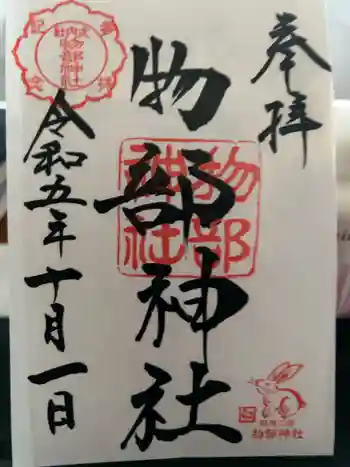 奉拝
物部神社
物部
神社
令和五年十月一日
参拝
記念
物部神社